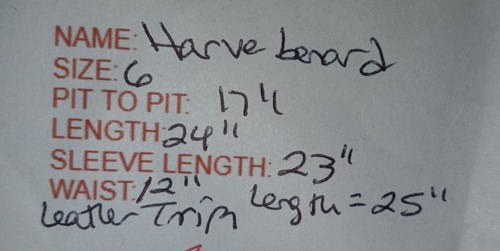 NAME: Harve benard
SIZE: 6
PIT TO PIT: 17"
LENGTH: 24"
SLEEVE LENGTH: 23"
WAIST: 12" Length = 25"
Leather Trim